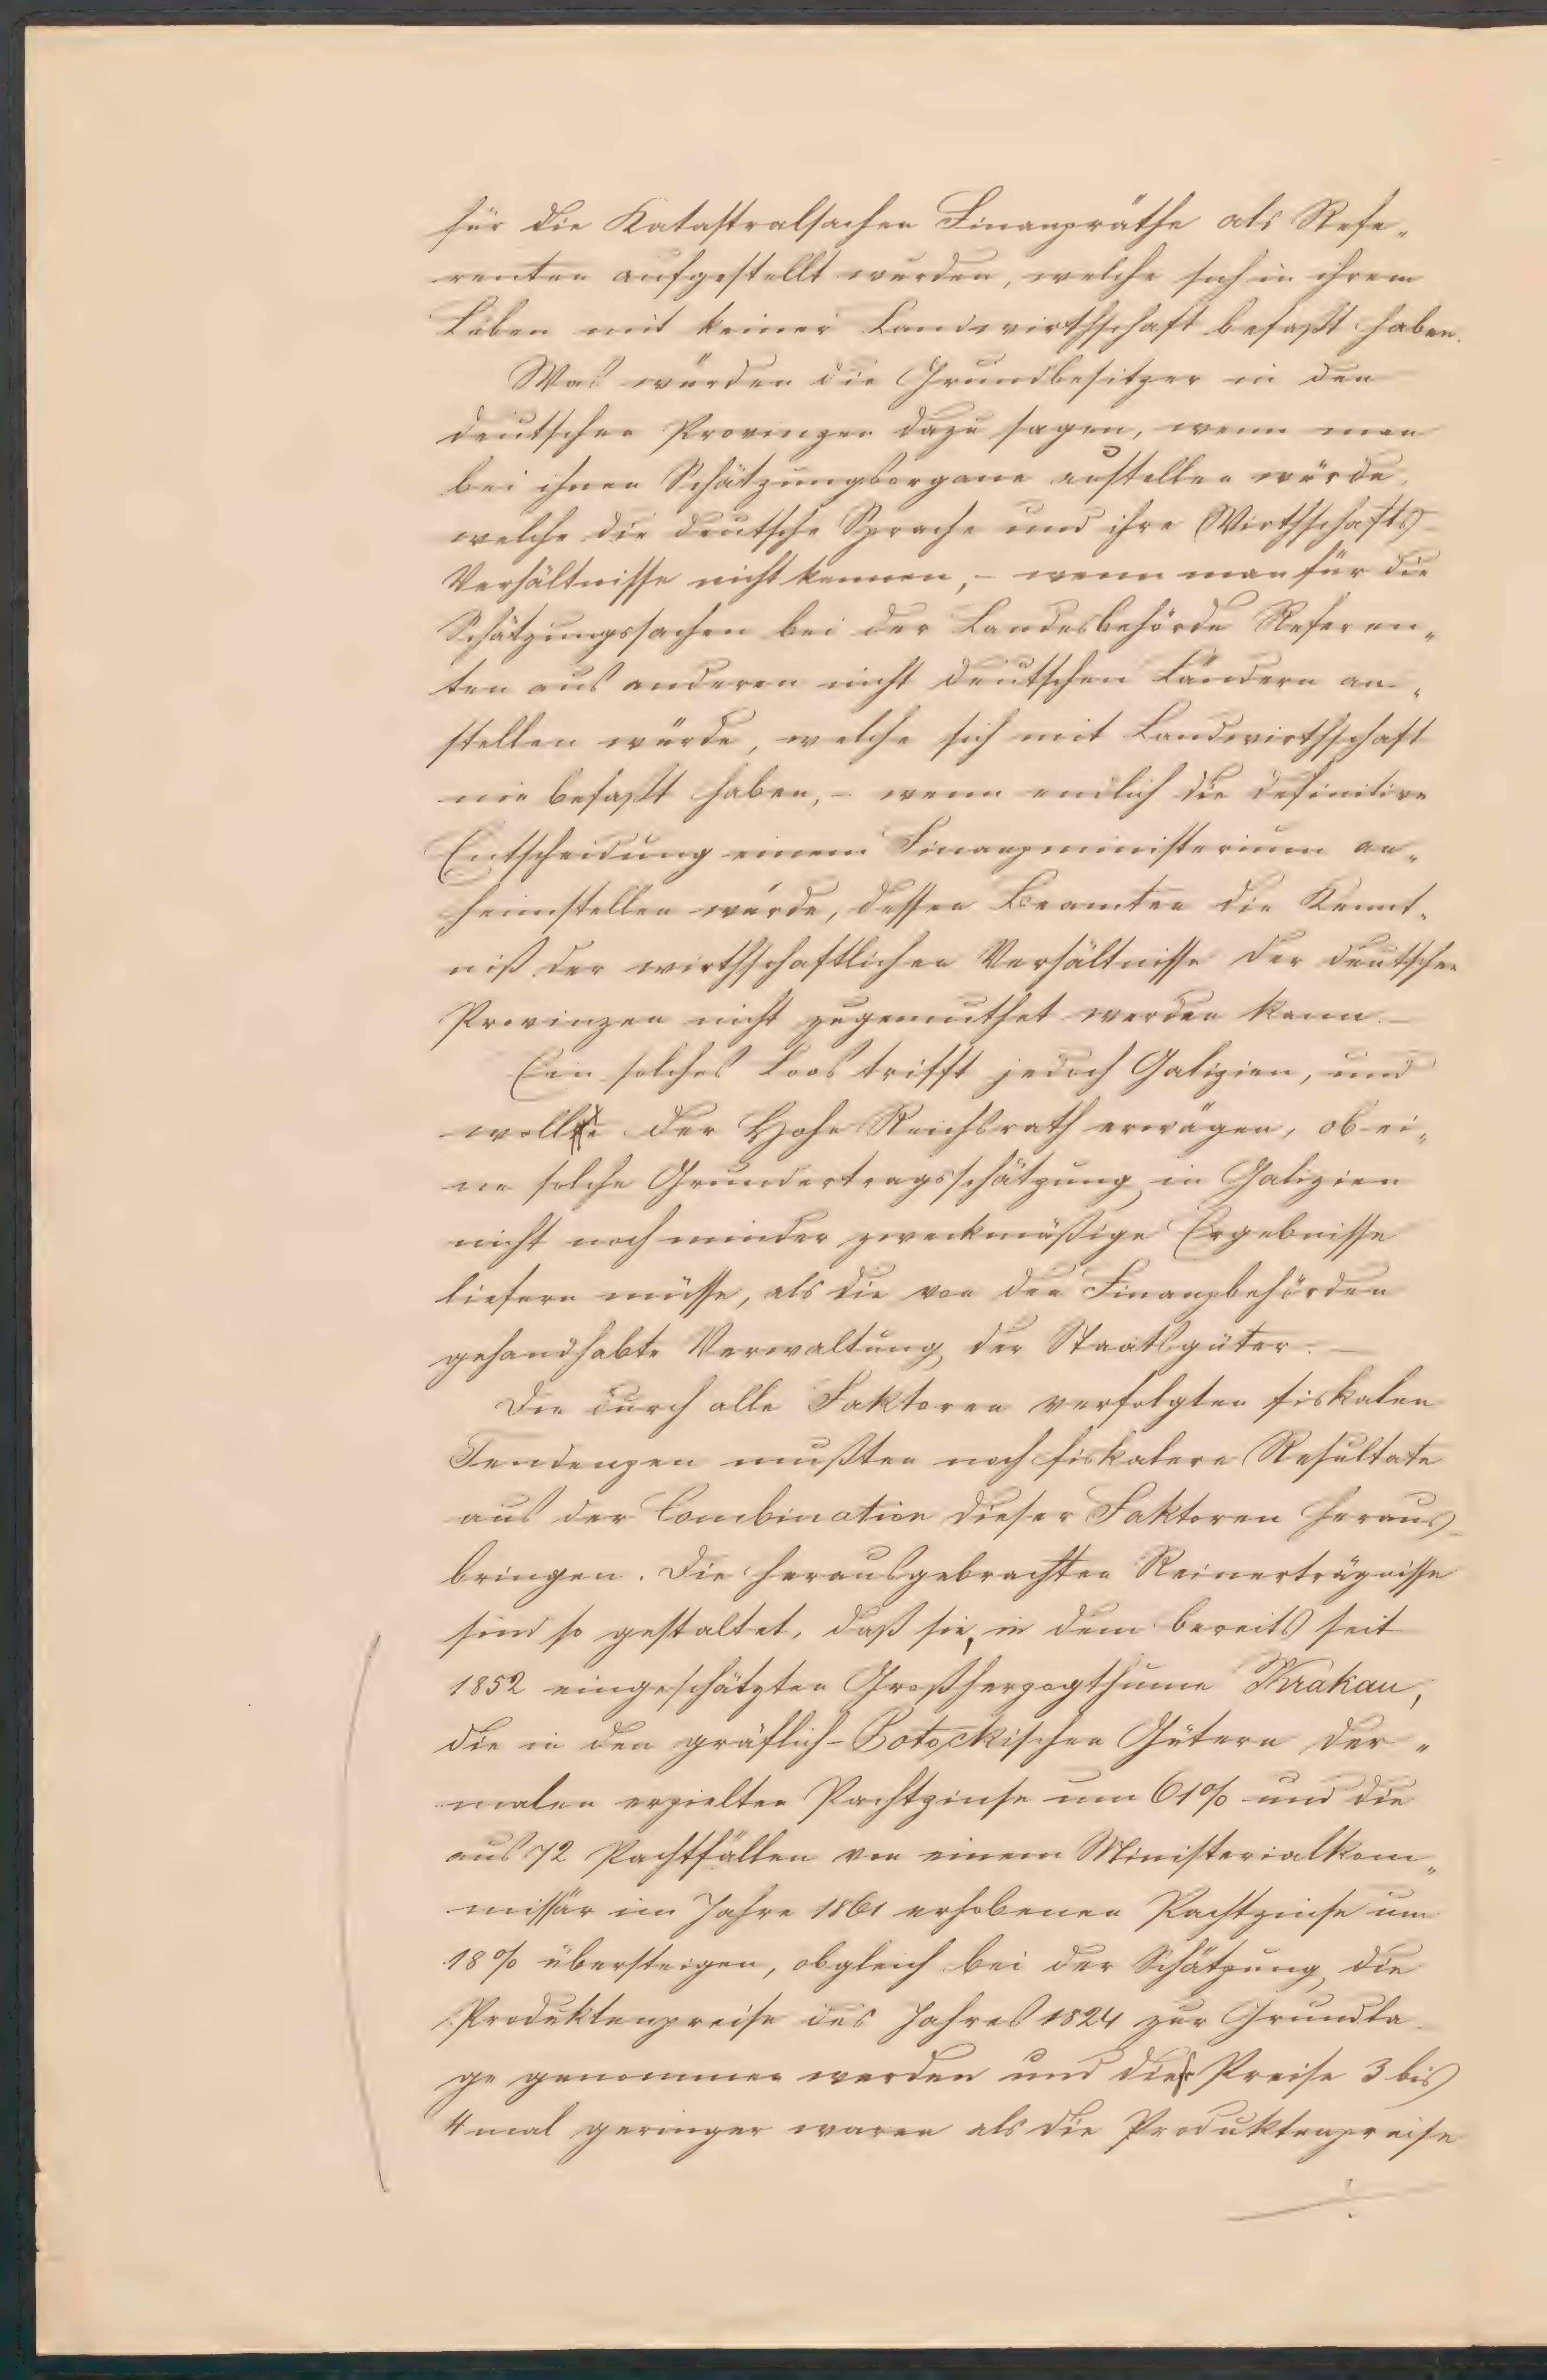 für die Katastralsachen Finanzräthe als Refe„
renten aufgestellt wurden, welche sich in ihrem
Leben mit keiner Landwirthschaft befaßt haben.
Was würden die Grundbesitzer in den
deutschen Provinzen dazu sagen, wenn man
bei ihnen Schätzungsorgane anstellen würde,
welche die deutsche Sprache und ihre Wirthschafts-
Verhältnisse nicht kennen, – wenn man für die
Schätzungssachen bei der Landesbehörde Referen„
ten aus anderen nicht deutschen Ländern an„
stellen würde, welche sich mit Landwirthschaft
nie befaßt haben, – wenn endlich die definitive
Entscheidung einem Finanzministerium an„
heimstellen würde, dessen Beamten die Kennt„
niß der wirthschaftlichen Verhältnisse der deutschen
Provinzen nicht zugemuthet werden kann. –
Ein solches Loos trifft jedoch Galizien, und
wolle der Hohe Reichsrath erwägen, ob ei„
ne solche Grundertragsschätzung in Galizien
nicht noch minder zweckmäßige Ergebnisse
liefern müsse, als die von den Finanzbehörden
gehandhabte Verwaltung der Staatsgüter. –
Die durch alle Faktoren verfolgten fiskalen
Tendenzen mußten noch fiskalere Resultate
aus der Combination dieser Faktoren heraus-
bringen. Die herausgebrachten Reinerträgnisse
sind so gestaltet, daß sie, in dem bereits seit
1852 eingeschätzten Großherzogthume Krakau,
die in den gräflich-Potockischen Gütern der„
malen erzielten Pachtzinse um 61% und die
aus 72 Pachtfällen von einem Ministerialkom„
missär im Jahre 1861 erhobenen Pachtzinse um
18% übersteigen, obgleich bei der Schätzung die
Produktenpreise des Jahres 1824 zur Grundla-
ge genommen werden und die Preise 3 bis
4 mal geringer waren als die Produktenpreise